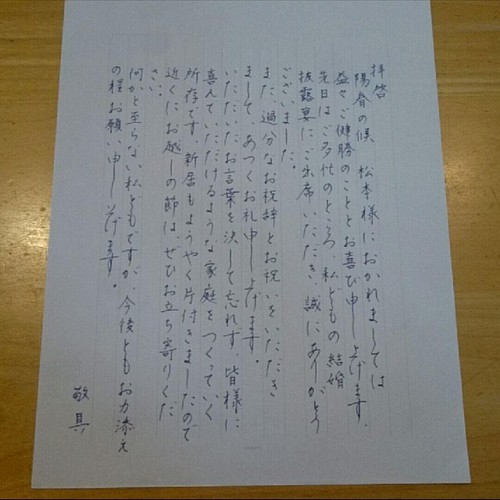 拝啓
陽春の候 松本様におかれましては
益々ご健勝のこととお喜び申し上げます。
先日はご多忙のところ、私どもの結婚
披露宴にご出席いただき、誠にありがとう
ございました。
また、過分なお祝辞とお祝いをいただき
まして、あつくお礼申し上げます。
いただいたお言葉を決して忘れず、皆様に
喜んでいただけるような家庭をつくっていく
所存です。新居もようやく片付きましたので
近くにお越しの節は、ぜひお立ち寄りくだ
さい。
何かと至らない私どもですが、今後ともお力添え
の程お願い申し上げます。
敬具